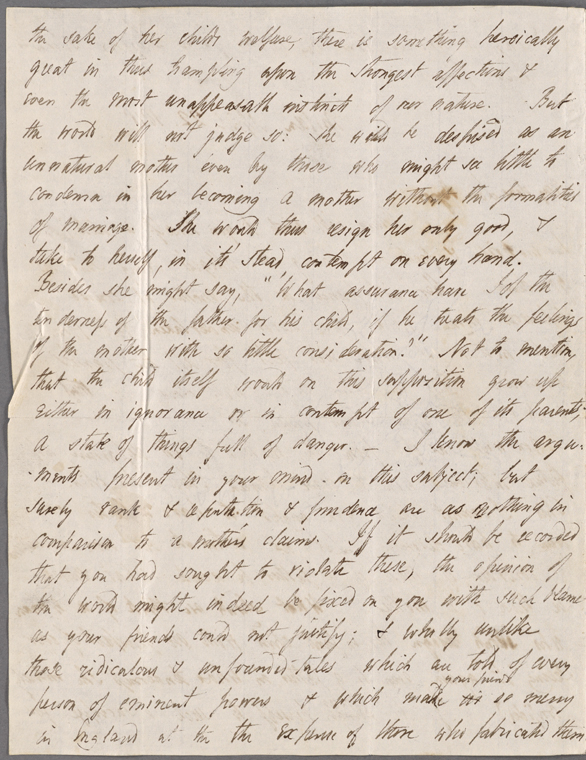 the sake of her child's welfare, there is something heroically
great in thus trampling upon the strongest affections &
even the most unappeasable instincts of our nature. But
the world will not judge so: she would be despised as an
unnatural mother even by those who might see little to
condemn in her becoming a mother without the formalities
of marriage. She would thus resign her only good, &
take to herself, in its stead contempt on every hand.
Besides she might say, "What assurance have I of the
tenderness of the father for his child, if he treats the feelings
of the mother with so little consideration?" Not to mention,
that the child itself would on this supposition grow up
either in ignorance or in contempt of one of its parents;
a state of things full of danger. — I know the argu-
-ments present in your mind on this subject; but
surely rank & reputation & prudence are as nothing in
comparison to a mother's claims. If it should be recorded
that you had sought to violate these, the opinion of
the world might indeed be fixed on you with such blame
as your friends could not justify; & wholly unlike
those ridiculous & unfounded tales which are told of every
person of eminent powers & which make your friends so merry
in England at the the expense of those who fabricated them